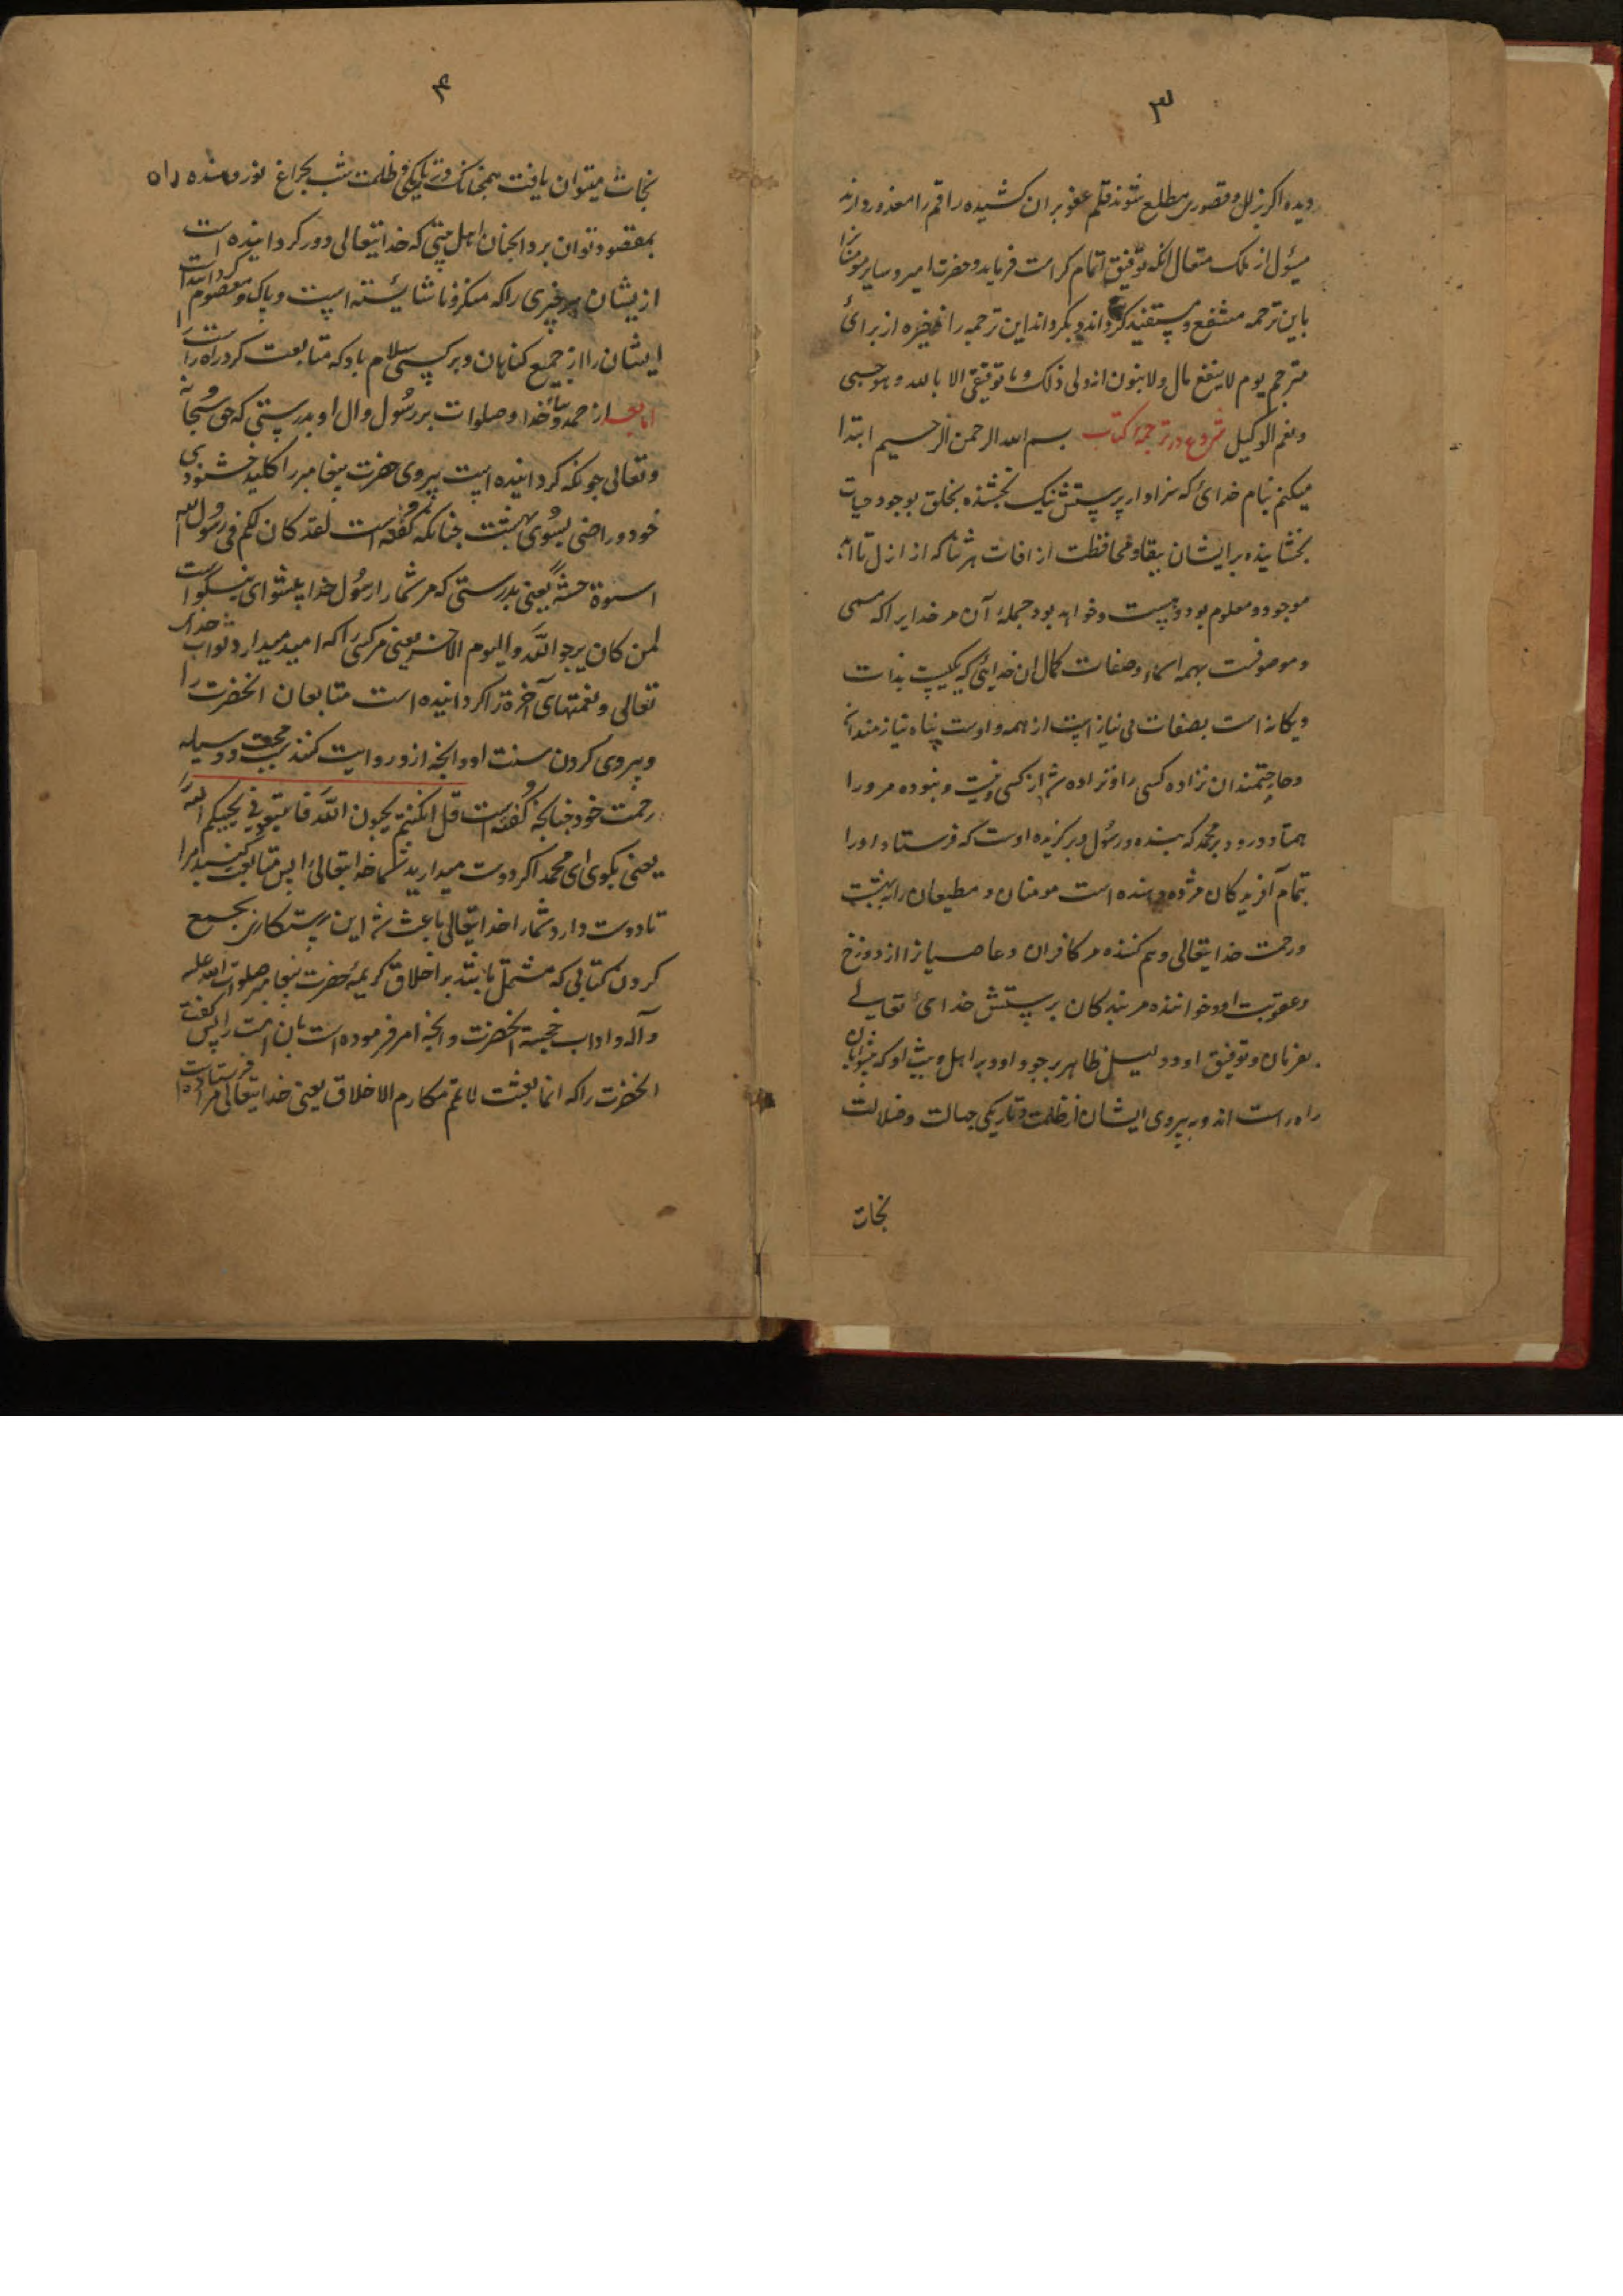 ۳
دیده اکر بزلل و قصوری مطلع شوند قلم عفو بران کشیده راقم را معذور دارند
مسؤل از ملک متعال انکه توفیق اتمام کرامت فرماید و حضرت امیر و سایر مومنانرا
باین ترجمه منتفع و مستفید کرداند و بکرداند این ترجمه را ذخیره از برای
مترجم یوم لا ینفع مال و لا بنون انه ولی ذلک و ما توفیقی الا بالله و هو حسبی
و نعم الوکیل شروع در ترجمه کتاب بسم الله الرحمن الرحیم ابتدا
میکنم بنام خدای که سزاوار پرستش نیک بخشنده بخلق بوجود حیات
بخشاینده بر ایشان ببقا و محافظت از افات هر ثنا که از ازل تا ابد
موجود و معلوم بود و هست و خواهد بود جملهٔ آن مر خدایرا که مسمی
و موصوفست بهمه اسماء و صفات کمال ان خدایی که یکیست بذات
و یکانه است بصفات بی نیاز است از همه و اوست پناه نیازمندان
و حاجتمندان نزاده کسی را و نزاده شد از کسی و نیست و نبوده مر ورا
همتا و درود بر محمد که بنده و رسول و برکزیده اوست که فرستاد اورا
بتمام آفریدکان مژده دهنده است مومنان و مطیعان را ببهشت
و رحمت خدایتعالی و بیم کننده مر کافران و عاصیانرا از دوزخ
و عقوبت او و خواننده مر بندکان بپرستش خدای تعالی
بفرمان و توفیق او و دلیل ظاهر بر وجود او و بر اهل بیت او که پیشوایان
راه راست اند و به پیروی ایشان از ظلمت و تاریکی جهالت و ضلالت
نجات
۴
نجات میتوان یافت همچنانکه در تاریکی و ظلمت شب بچراغ نور دهنده راه
بمقصود توان برد انچنان اهل بیتی که خدایتعالی دور کردانیده است
از یشان هر چیزی را که منکر و ناشایسته است و پاک و معصوم کردانیده است
ایشان را از جمیع کناهان و بر کسی سلام باد که متابعت کرد راه راست را
اما بعد از حمد و ثنای خدا و صلوات بر رسول و ال او بدرستی که حق سبحانه
و تعالی چونکه کردانیده است پیروی حضرت پیغامبر را کلید خشنودی
خود و راضی بسوی بهشت چنانکه فرموده کفته است لقد کان لکم فی رسول الله
اسوة حسنة یعنی بدرستی که مر شما را رسول خدا پیشوای نیکو است
لمن کان یرجوا الله و الیوم الاخر یعنی مر کسی را که امید میدارد ثواب خدای
تعالی و نعمتهای آخرة را کردانیده است متابعان انحضرت را
و پیروی کردن سنت او و انچه از و روایت کنند سبب محبت و وسیله
رحمت خود چنانچه کفته است قل ان کنتم تحبون الله فاتبعونی یحببکم الله
یعنی بکوی ای محمد اکر دوست میدارید شما خدایتعالی را پس متابعت کنید مرا
تا دوست دارد شما را خدایتعالی باعث شد این رستکاری بجمع
کردن کتابی که مشتمل باشد بر اخلاق کریمهٔ حضرت پیغامبر صلوات الله علیه
و آله و اداب خجسته انحضرت و انچه امر فرموده است بان امت را پس کفته
انحضرت را که انما بعثت لاتمم مکارم الاخلاق یعنی خدایتعالی مرا فرستاده است